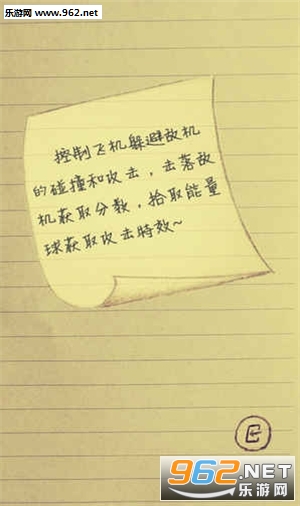 乐游网 www.962.net
www.962.net
控制飞机躲避敌机
的碰撞和攻击，击落敌
机获取分数，拾取能量
球获取攻击特效~
962.NET
乐游网